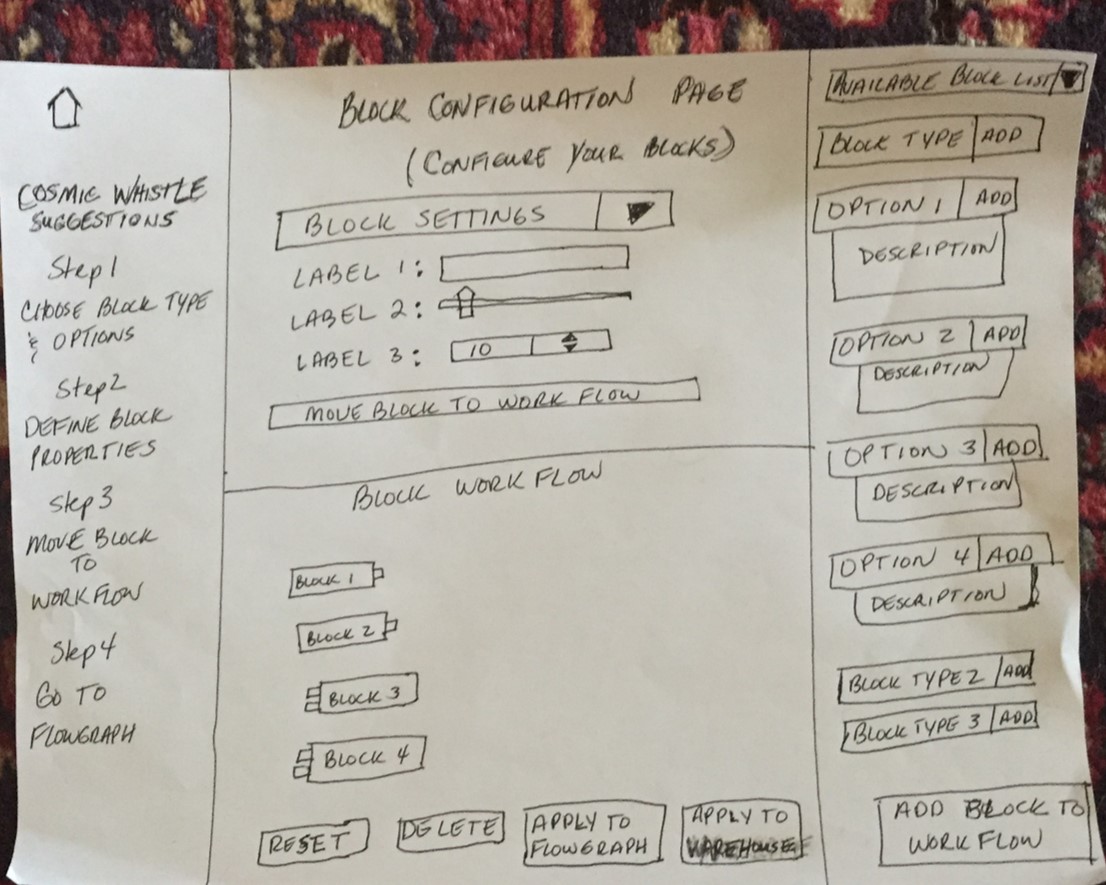 COSMIC WHISTLE
SUGGESTIONS
Step 1
CHOOSE BLOCK TYPE
& OPTIONS
Step 2
DEFINE BLOCK
PROPERTIES
Step 3
MOVE BLOCK
TO
WORK FLOW
Step 4
GO TO
FLOWGRAPH
BLOCK CONFIGURATION PAGE
(CONFIGURE YOUR BLOCKS)
BLOCK SETTINGS
LABEL 1:
LABEL 2:
LABEL 3: 10
MOVE BLOCK TO WORK FLOW
BLOCK WORK FLOW
BLOCK 1
BLOCK 2
BLOCK 3
BLOCK 4
RESET
DELETE
APPLY TO
FLOWGRAPH
APPLY TO
WAREHOUSE
AVAILABLE BLOCK LIST
BLOCK TYPE ADD
OPTION 1 ADD
DESCRIPTION
OPTION 2 ADD
DESCRIPTION
OPTION 3 ADD
DESCRIPTION
OPTION 4 ADD
DESCRIPTION
BLOCK TYPE 2 ADD
BLOCK TYPE 3 ADD
ADD BLOCK TO
WORK FLOW